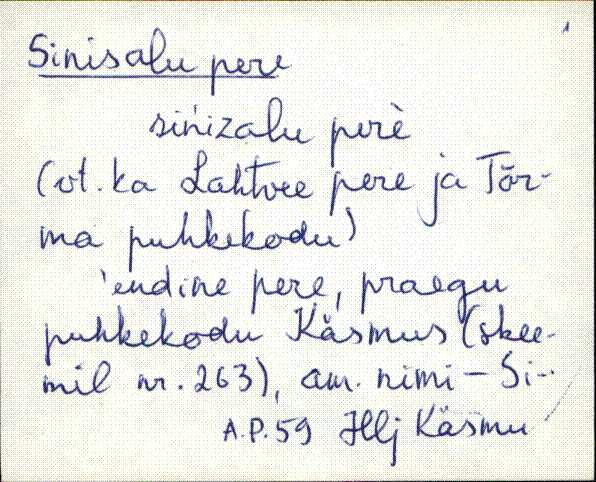 Sinisalu pere
sińizalu perè
(vt. ka Lahtvee pere ja Tõr-
ma puhkekodu)
endine pere, praegu
puhkekodu Käsmus (skee-
mil nr. 263), am. nimi – Si-
A.P. 59 Hlj Käsmu